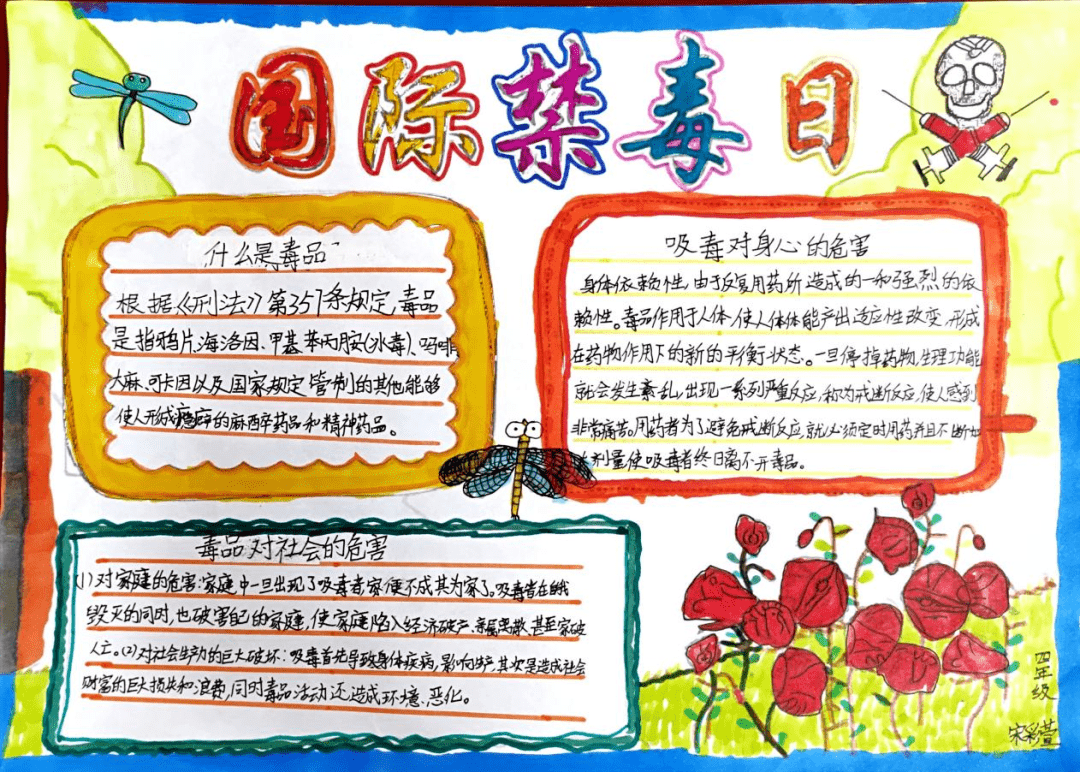 国际禁毒日
什么是毒品
根据《刑法》第357条规定,毒品
是指鸦片、海洛因、甲基苯丙胺(冰毒)、吗啡
大麻、可卡因以及国家规定管制的其他能够
使人形成瘾癖的麻醉药品和精神药品。
吸毒对身心的危害
身体依赖性,由于反复用药所造成的一种强烈的依
赖性。毒品作用于人体,使人体体能产出适应性改变,形成
在药物作用下的新的平衡状态。一旦停掉药物,生理功能
就会发生紊乱,出现一系列严重反应,称为戒断反应,使人感到
非常痛苦。用药者为了避免戒断反应,就必须定时用药并且不断加
剂量使吸毒者终日离不开毒品。
毒品对社会的危害
(1)对家庭的危害:家庭中一旦出现了吸毒者,家便不成其为家了。吸毒者在
毁灭的同时,也破害自己的家庭,使家庭陷入经济破产、亲属离散、甚至家破
人亡。(2)对社会生产力的巨大破坏:吸毒首先导致身体疾病,影响生产,其次是造成社会
财富的巨大损失和浪费,同时毒品活动还造成环境、恶化。
四年级
宋彩萱